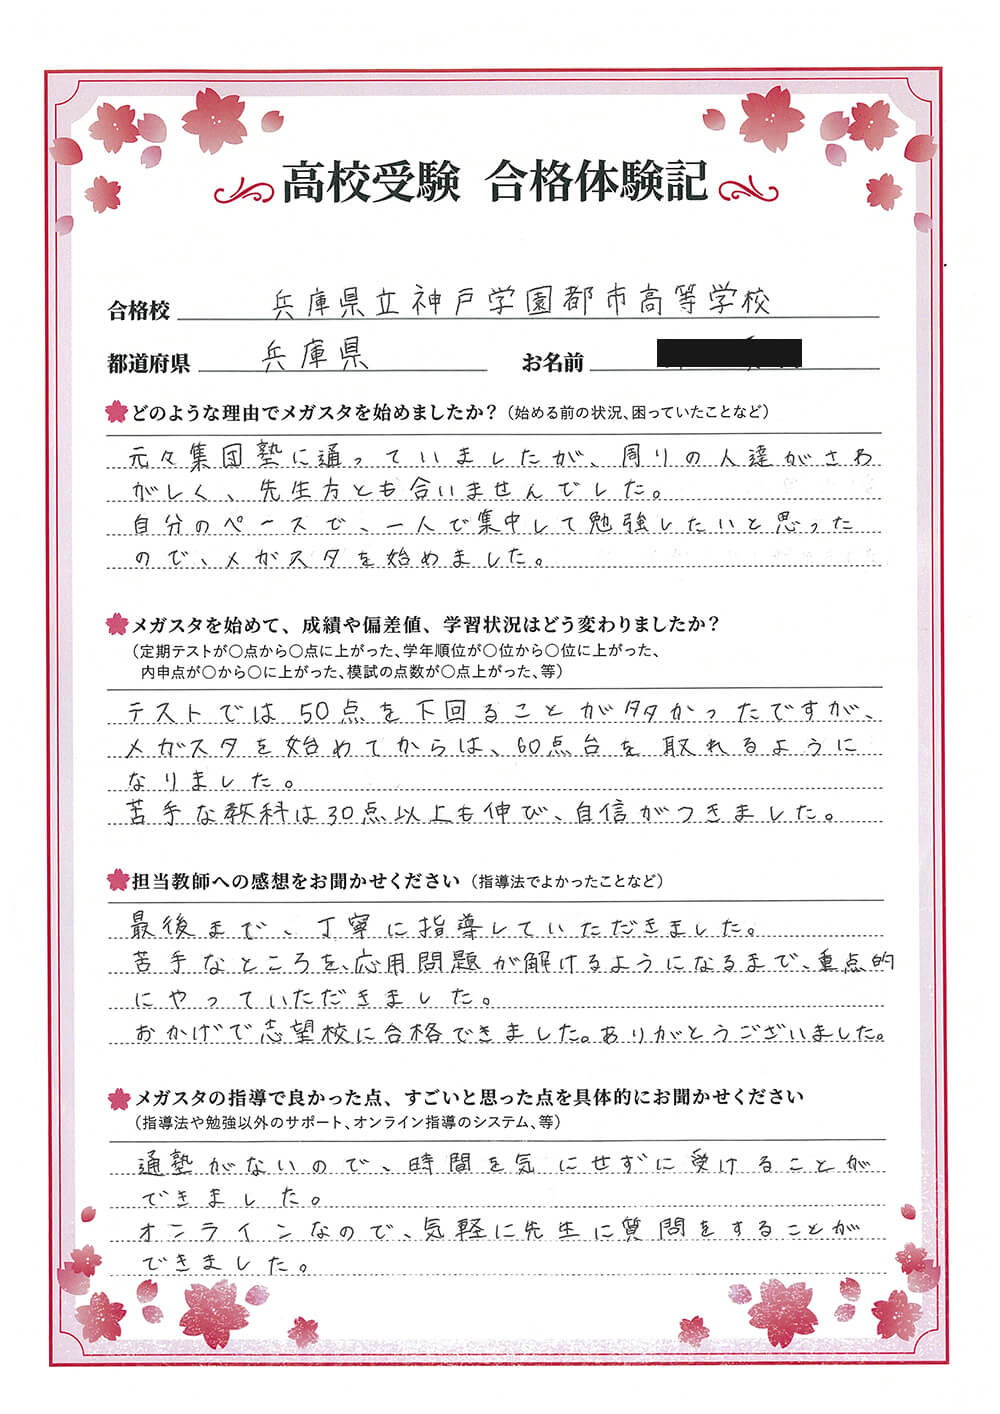 高校受験 合格体験記
合格校 兵庫県立神戸学園都市高等学校
都道府県 兵庫県 お名前
どのような理由でメガスタを始めましたか？（始める前の状況、困っていたことなど）
元々集団塾に通っていましたが、周りの人達がさわ
がしく、先生方とも合いませんでした。
自分のペースで、一人で集中して勉強したいと思った
ので、メガスタを始めました。
メガスタを始めて、成績や偏差値、学習状況はどう変わりましたか？
（定期テストが〇点から〇点に上がった、学年順位が〇位から〇位に上がった、
内申点が〇から〇に上がった、模試の点数が〇点上がった、等）
テストでは50点を下回ることが多かったですが、
メガスタを始めてからは、60点台を取れるように
なりました。
苦手な教科は30点以上も伸び、自信がつきました。
担当教師への感想をお聞かせください（指導法でよかったことなど）
最後まで、丁寧に指導していただきました。
苦手なところを、応用問題が解けるようになるまで、重点的
にやっていただきました。
おかげで志望校に合格できました。ありがとうございました。
メガスタの指導で良かった点、すごいと思った点を具体的にお聞かせください
（指導法や勉強以外のサポート、オンライン指導のシステム、等）
通塾がないので、時間を気にせずに受けることが
できました。
オンラインなので、気軽に先生に質問をすることが
できました。